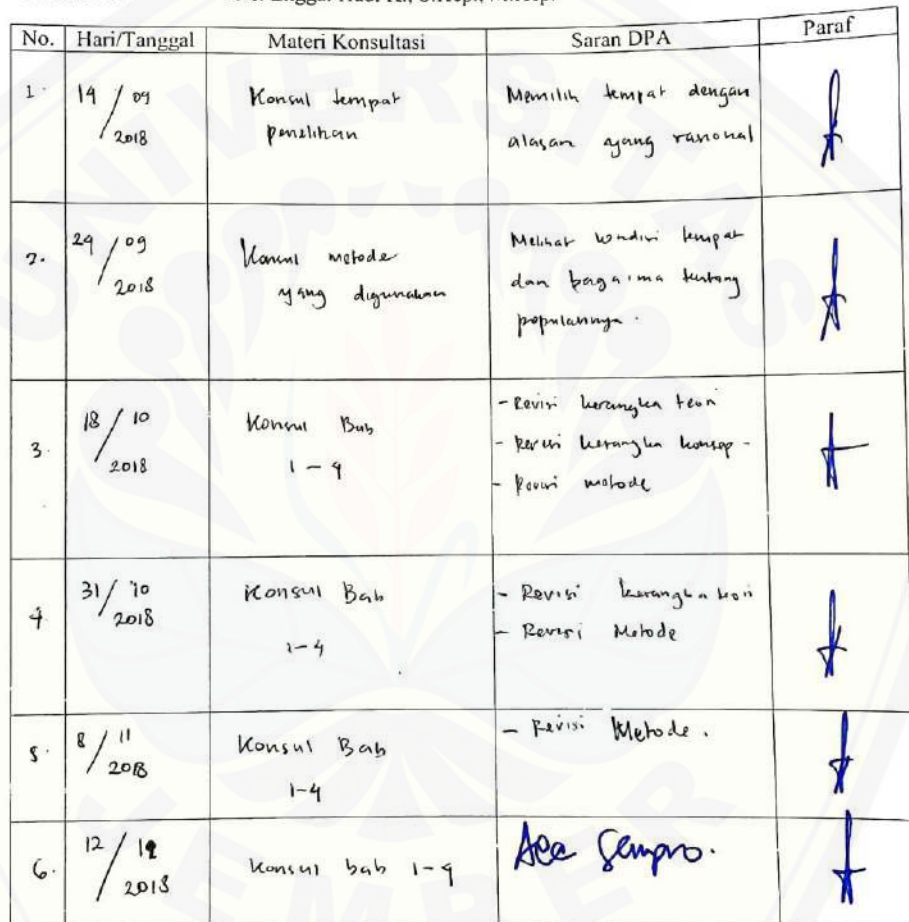 No. Hari/Tanggal Materi Konsultasi Saran DPA Paraf
1. 14/09 2018 Konsul tempat penelitian Memilih tempat dengan
alasan yang rasional
2. 24/09 2018 Konsul metode yang digunakan Melihat kondisi tempat
dan bagaima tentang
populasinya.
3. 18/10 2018 Konsul Bab 1-4 - Revisi kerangka teori
- Revisi kerangka konsep -
- Revisi metode
4. 31/10 2018 Konsul Bab 1-4 - Revisi kerangka teori
- Revisi Metode
5. 8/11 2018 Konsul Bab 1-4 - Revisi Metode.
6. 12/ 2018 Konsul bab 1-4 Acc Sempro.
UNIVERSITAS
JEMBER